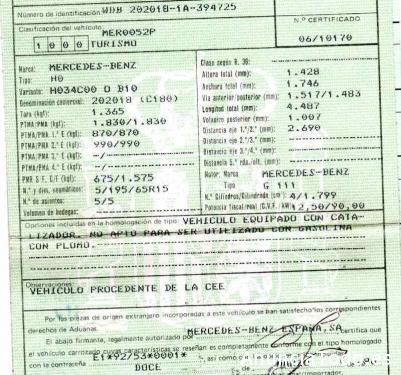 Número de identificación WDB 202018-1A-394725
N.º CERTIFICADO
Clasificación del vehículo: MER0052P
06/10170
1 0 0 0 TURISMO
Marca: MERCEDES-BENZ
Tipo: H0
Variante: H034C00 O B10
Denominación comercial: 202018 (C180)
Tara (kg): 1.365
PTMA/PMA (kg): 1.830/1.830
PTMA/PMA 1.º E (kg): 870/870
PTMA/PMA 2.º E (kg): 990/990
PTMA/PMA 3.º E (kg): -/
PTMA/PMA 4.º E (kg): -/
PMR S.F. E (kg): 675/1.575
N.º y dim. neumáticos: 5/195/65R15
N.º de asientos: 5/5
Volumen de bodegas: -
Clase según R. 36: -
Altura total (mm): 1.428
Anchura total (mm): 1.746
Vía anterior/posterior (mm): 1.517/1.483
Longitud total (mm): 4.487
Voladizo posterior (mm): 1.007
Distancia eje 1.º/2.º (mm): 2.690
Distancia eje 2.º/3.º (mm):
Distancia eje 3.º/4.º (mm):
Distancia 5.ª rda./ult. (mm):
Motor: Marca MERCEDES-BENZ
Tipo G 111
N.º Cilindros/Cilindrada (cm³) 4/1.799
Potencia fiscal/real (C.V.F./kW) 12,50/90,00
Opciones incluidas en la homologación de tipo: VEHICULO EQUIPADO CON CATA-
LIZADOR. NO APTO PARA SER UTILIZADO CON GASOLINA
CON PLOMO.
Observaciones:
VEHICULO PROCEDENTE DE LA CEE
Por las piezas de origen extranjero incorporadas a este vehículo se han satisfecho los correspondientes
derechos de Aduanas.
El abajo firmante, legalmente autorizado por MERCEDES-BENZ ESPAÑA,SA certifica que
el vehículo carrozado cuyas características se reseñan es completamente conforme con el tipo homologado
con la contraseña E1*92/53*0001* , así como
DOCE